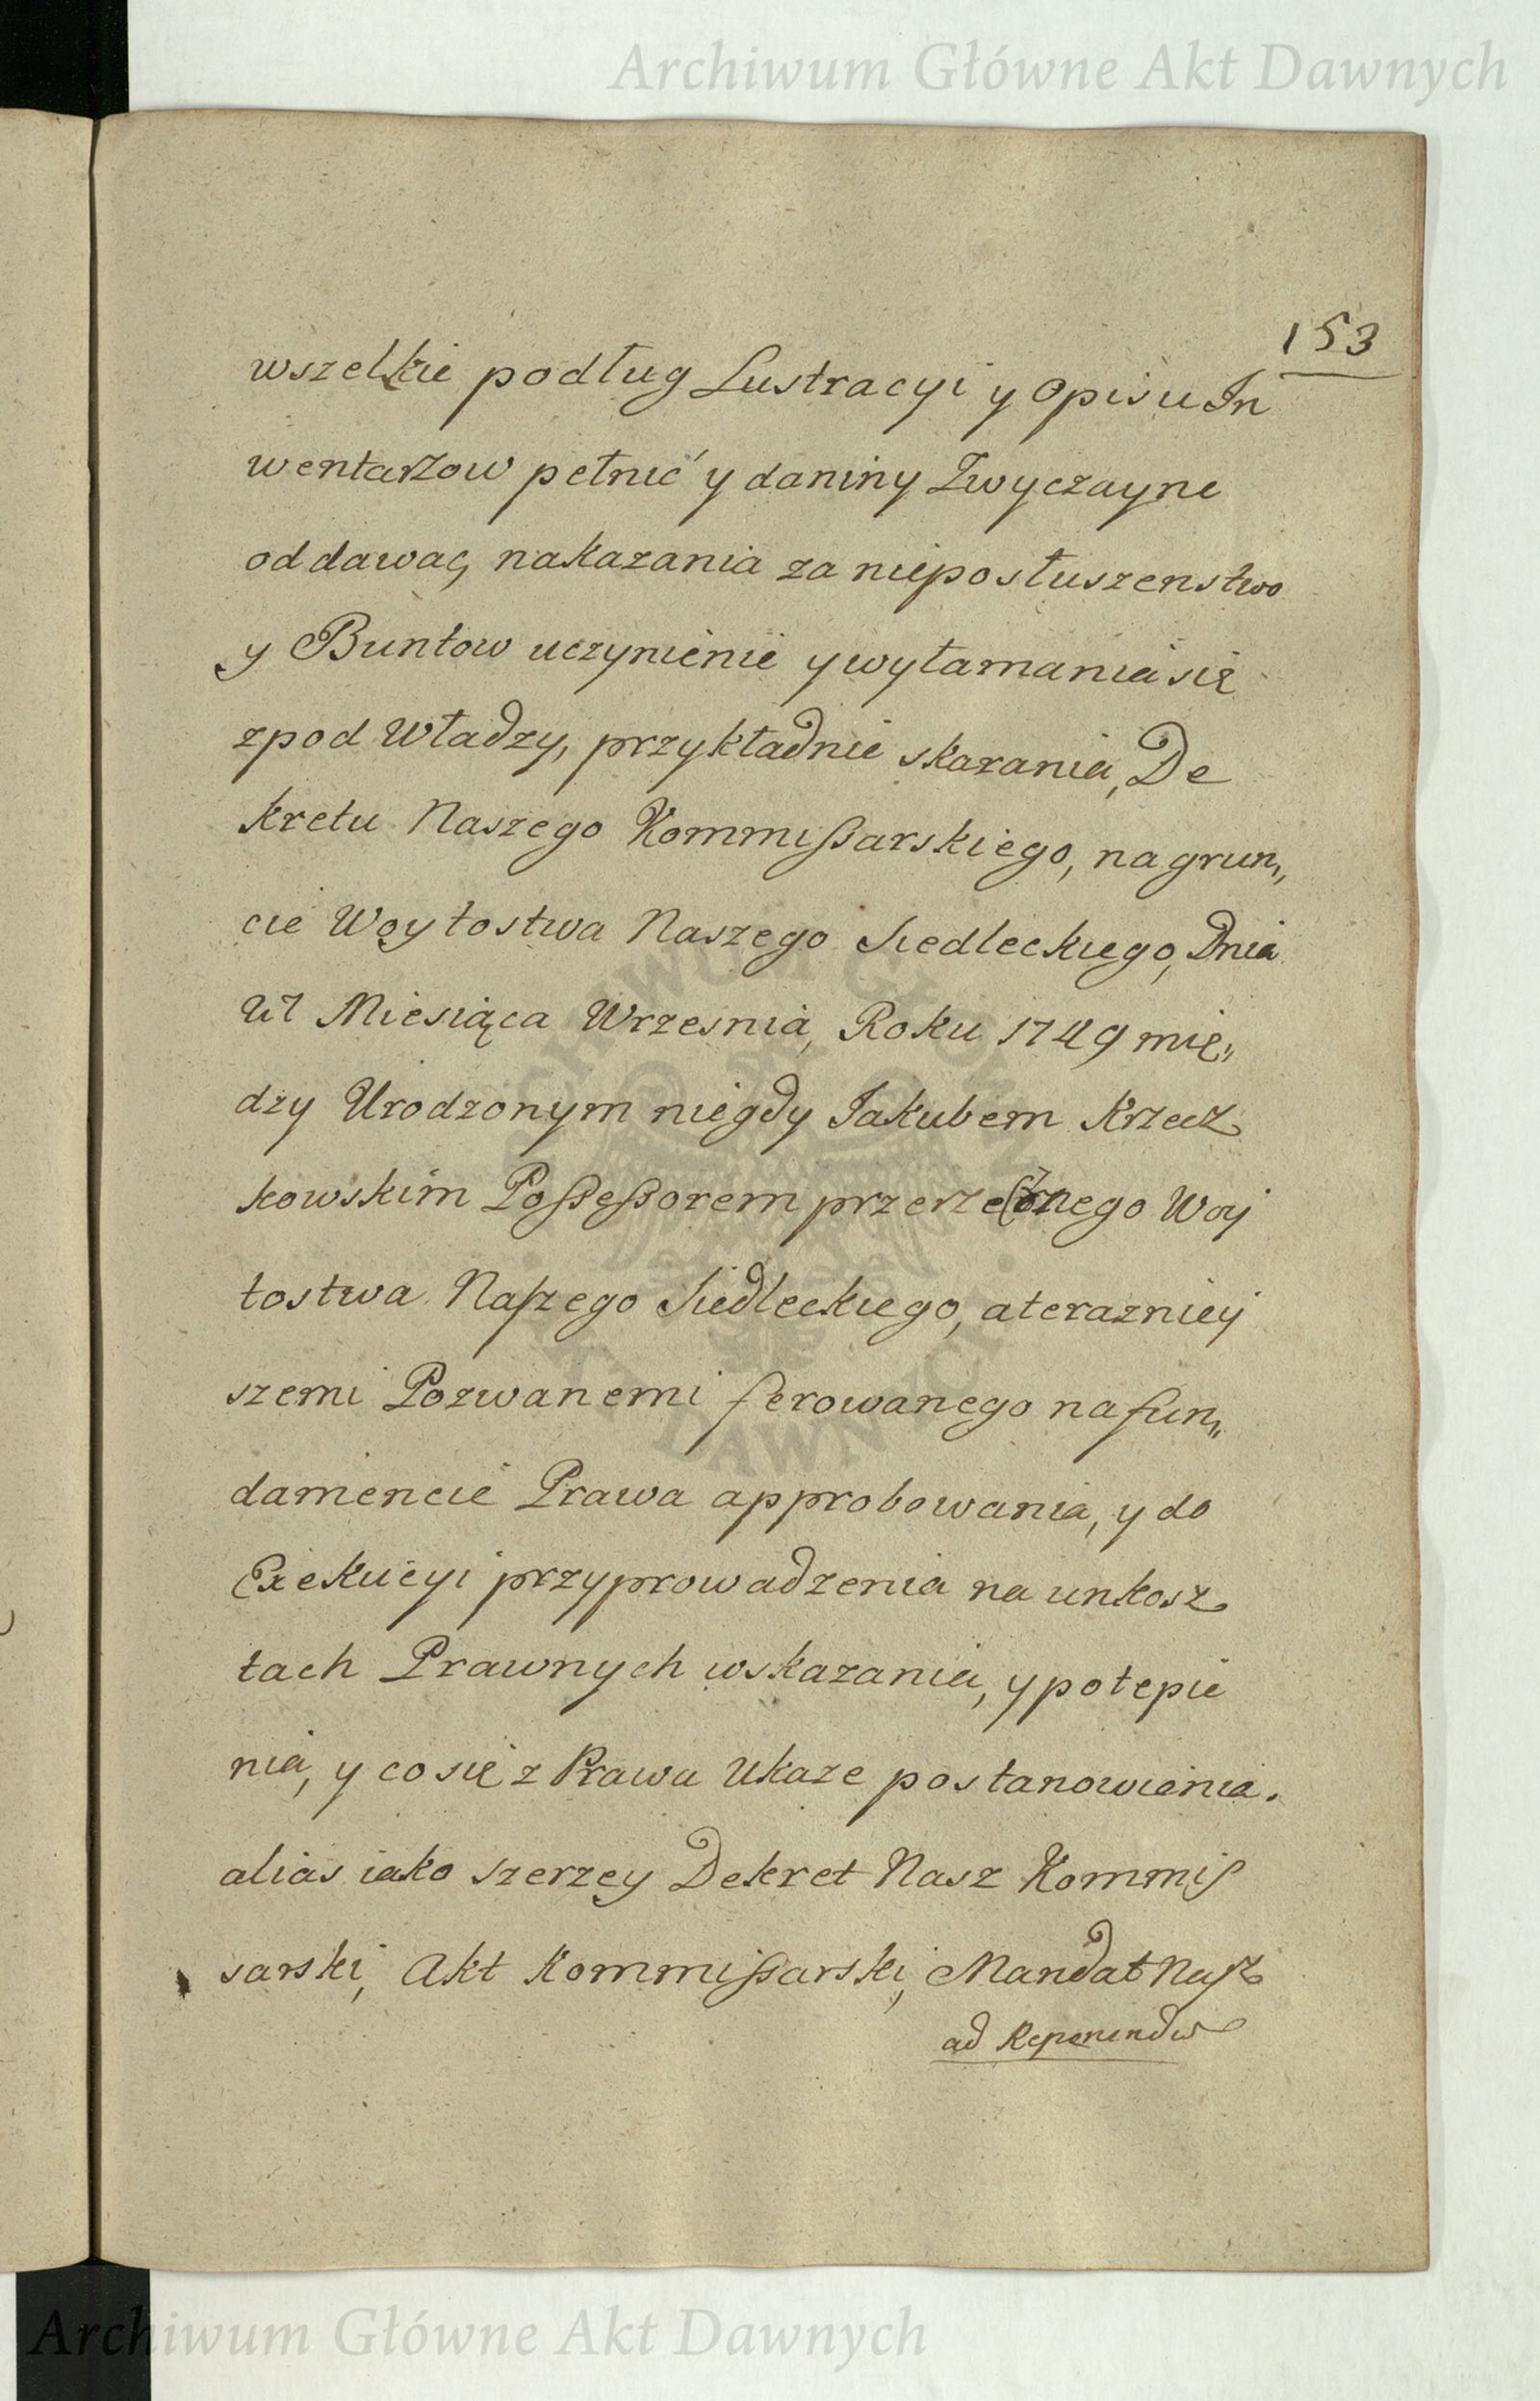 Archiwum Główne Akt Dawnych
153
wszelkie podług Lustracyi y Opisu In
wentarzow pełnić y daniny Zwyczayne
oddawać, nakazania za nieposłuszenstwo
y Buntow uczynienie y wyłamania się
zpod Władzy, przykładnie skarania, De
kretu Naszego Kommissarskiego, na grun„
cie Woytostwa Naszego Siedleckiego, Dnia
Miesiąca Wrzesnia, Roku 1749 mię„
dzy Urodzonym niegdy Jakubem Krzecz
kowskim Possessorem przerzeczonego Woy
tostwa Naszego Siedleckiego, a terazniey
szemi Pozwanemi ferowanego na fun„
damencie Prawa approbowania, y do
Exekucyi przyprowadzenia na unkosz
tach Prawnych wskazania, y potepie
nia, y co się z Prawa Ukaze postanowienia.
alias iako szerzey Dekret Nasz Kommis
sarski, Akt Kommissarski, Mandat Nasz
ad Reponendū
Archiwum Główne Akt Dawnych